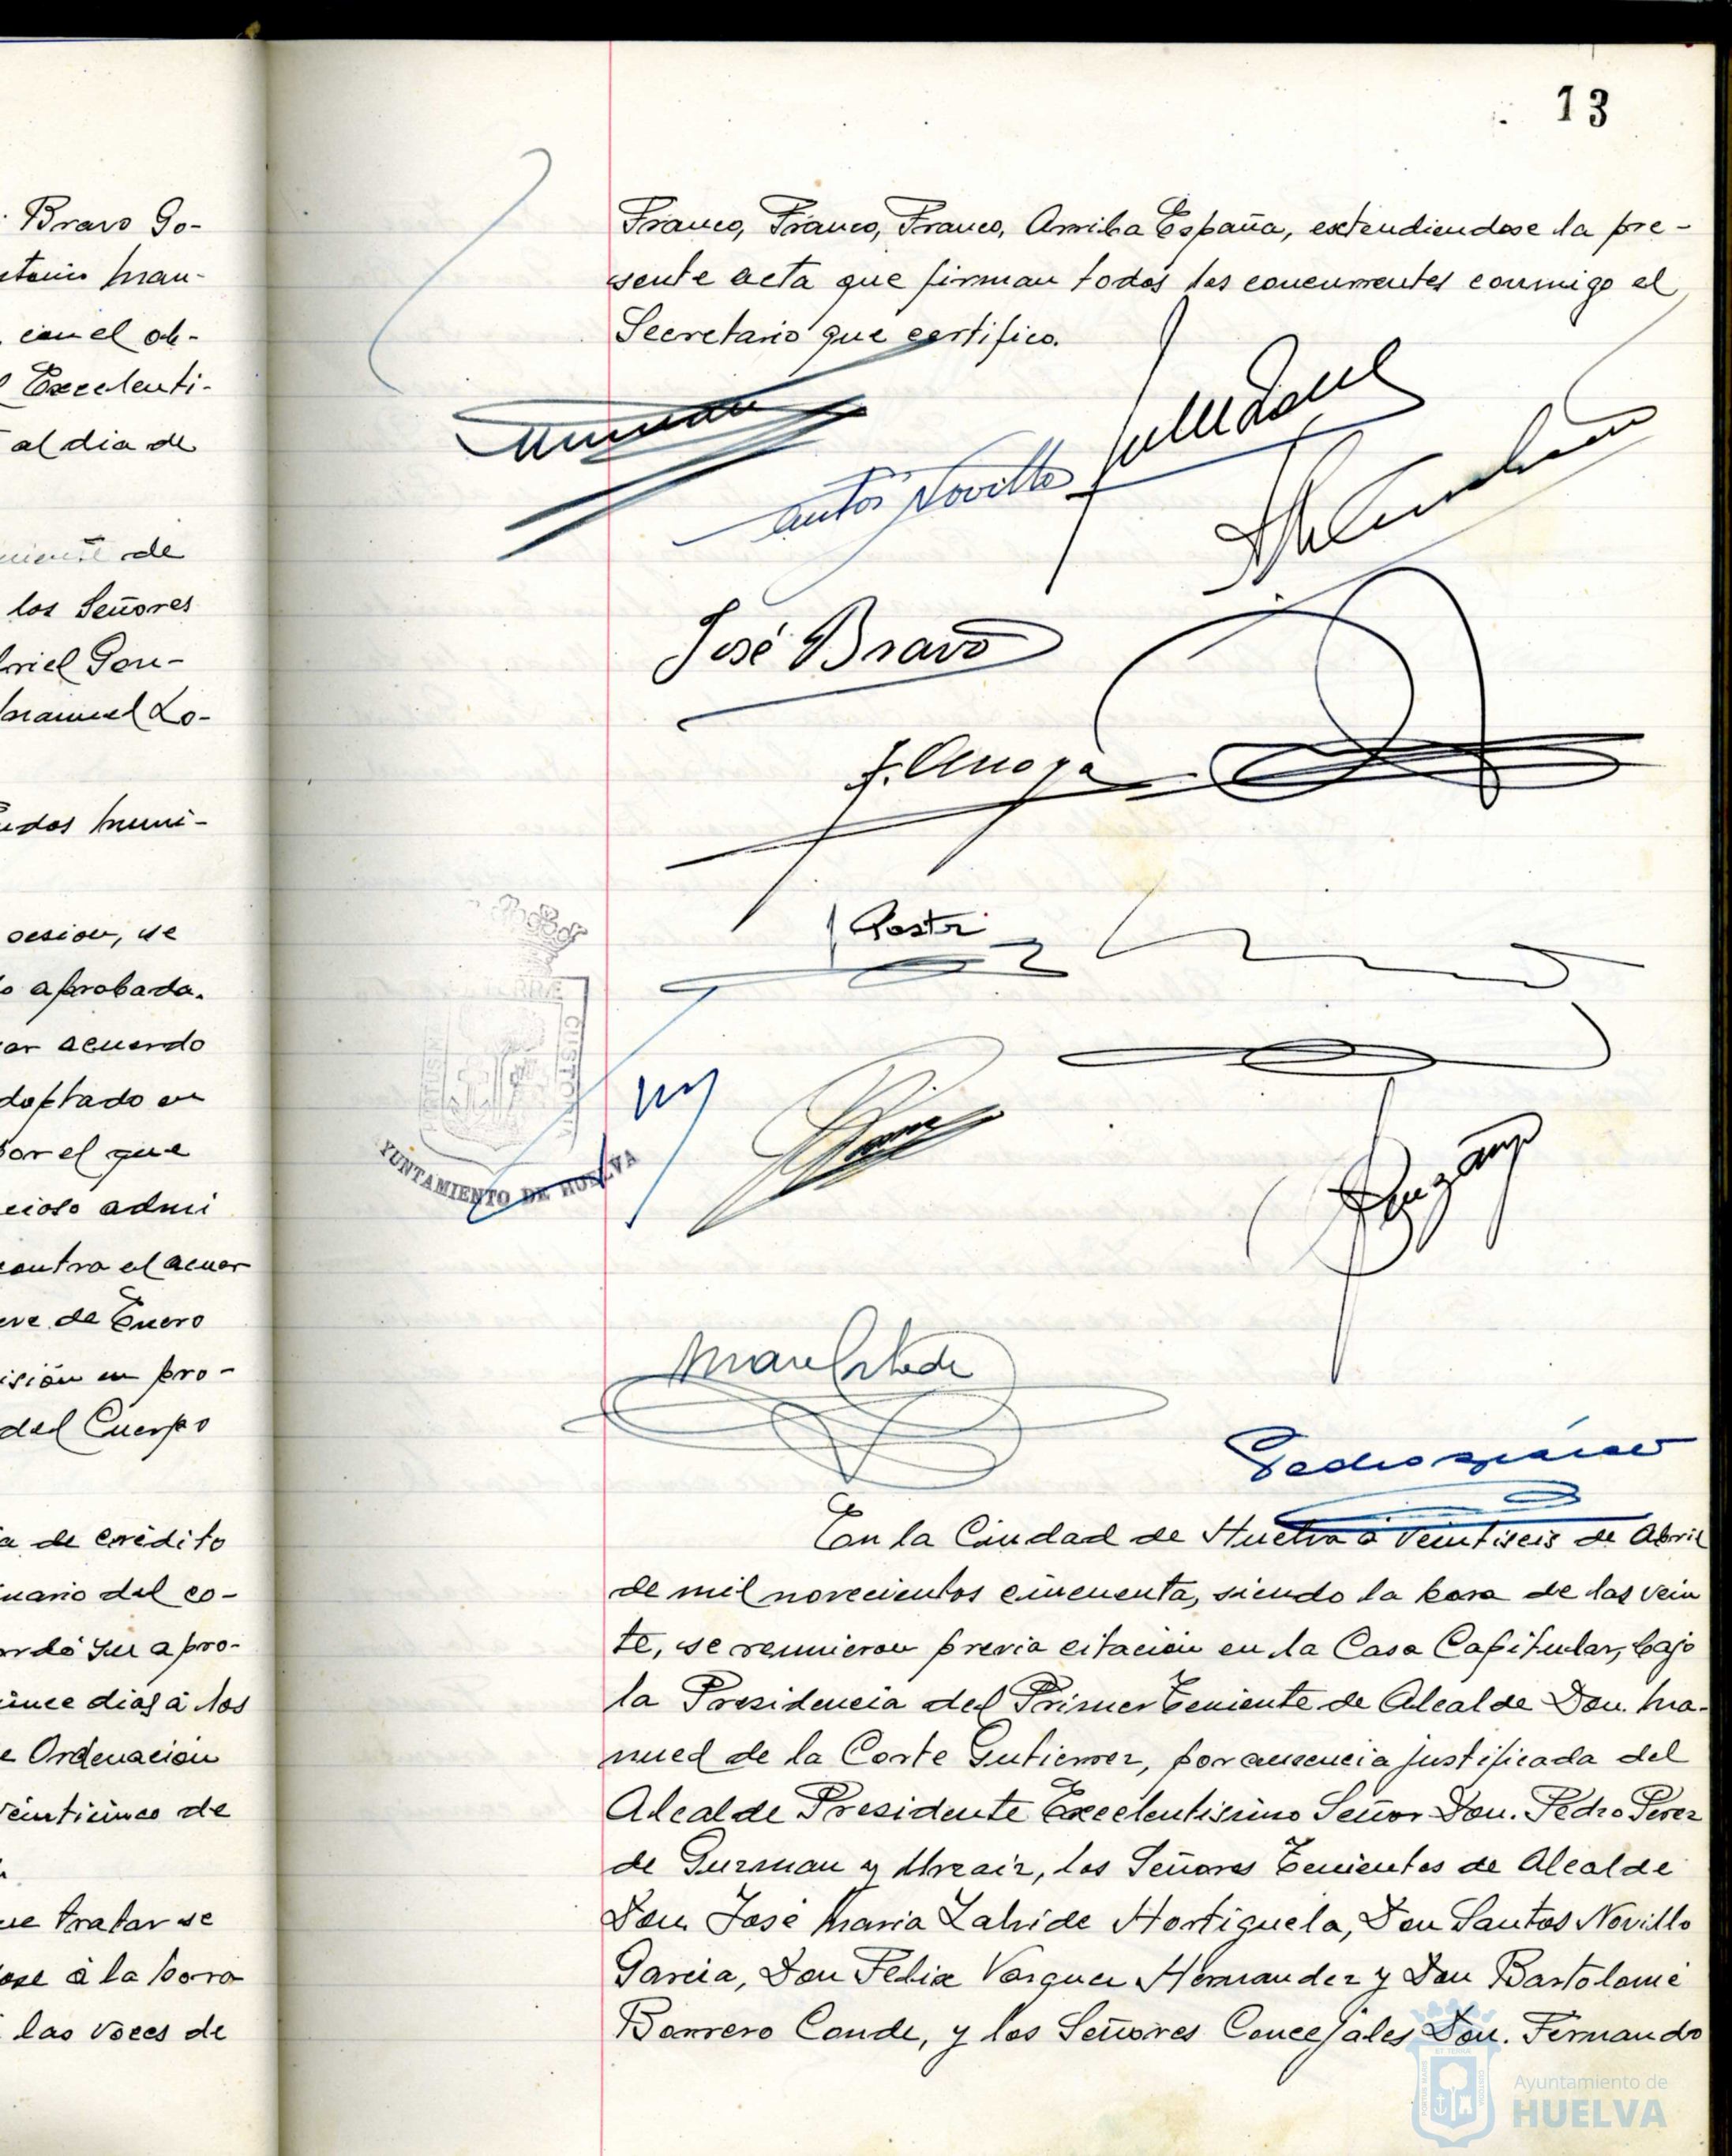 Bravo Go-
man-
con el ob-
Excelenti-
al dia de
de
los Señores
Gon-
Manuel Lo-
muni-
sesion, se
aprobada.
acuerdo
en
por el que
admi
contra el acuer
de Enero
en pro-
del Cuerpo
de crédito
del co-
su apro-
dias á los
Ordenacion
veinticinco de
tratar se
á la hora
las voces de
13
Franco, Franco, Franco, Arriba España, extendiendose la pre-
sente acta que firman todos los concurrentes conmigo el
Secretario que certifico.
Santos Novillo
José Bravo
J. Arroyo
AYUNTAMIENTO DE HUELVA
En la Ciudad de Huelva á veintiseis de Abril
de mil novecientos cincuenta, siendo la hora de las vein
te, se reunieron previa citacion en la Casa Capitular, bajo
la Presidencia del Primer Teniente de Alcalde Don. Ma-
nuel de la Corte Gutierrez, por ausencia justificada del
Alcalde Presidente Excelentisimo Señor Don. Pedro Perez
de Guzman y Urzaiz, los Señores Tenientes de Alcalde
Don José Maria Zahide Hortiguela, Don Santos Novillo
Garcia, Don Felix Vazquez Hernandez y Don Bartolomé
Borrero Conde, y los Señores Concejales Don. Fernando
Ayuntamiento de
HUELVA